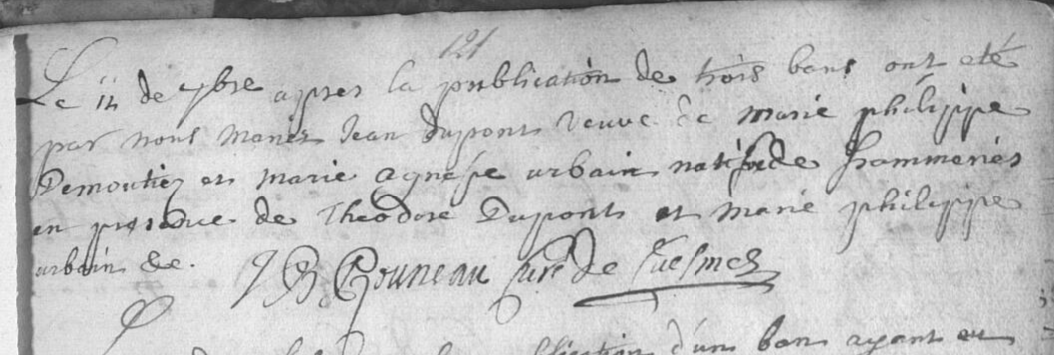 121
Le 12 de 7bre apres la publication de trois bans ont eté
par nous mariez Jean dupont veuve de marie philippe
Demoutiez et marie agnese urbain natifve de frammeries
en presence de Theodore Dupont et marie philippe
urbain &c. J B Gouneau curé de Cuesmes
d'un ban ayant eu